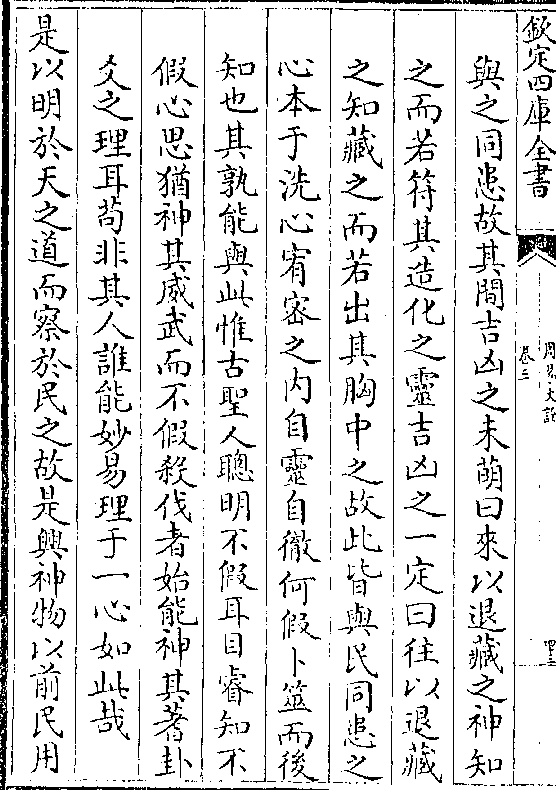 欽定四庫全書
周易文詮
卷三
四三
與之同患故其間吉凶之未萌曰來以退藏之神知
之而若符其造化之靈吉凶之一定曰往以退藏
之知藏之而若出其胸中之故此皆與民同患之
心本于洗心宥密之内自靈自徹何假卜筮而後
知也其孰能與此惟古聖人聰明不假耳目睿知不
假心思猶神其威武而不假殺伐者始能神其蓍卦
爻之理耳苟非其人誰能妙易理于一心如此哉
是以明於天之道而察於民之故是興神物以前民用